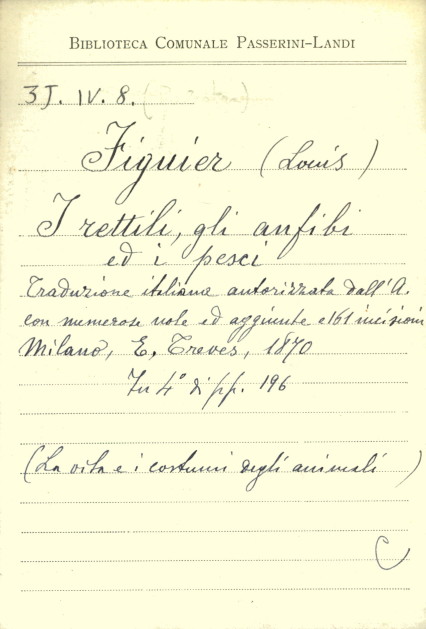 BIBLIOTECA COMUNALE PASSERINI-LANDI
3J. IV. 8.
Figuier (Louis)
I rettili, gli anfibi
ed i pesci
Traduzione italiana autorizzata dall'A.
con numerose note ed aggiunte e 161 incisioni
Milano, E. Treves, 1870
In 4° di pp. 196
(La vita e i costumi degli animali)
C